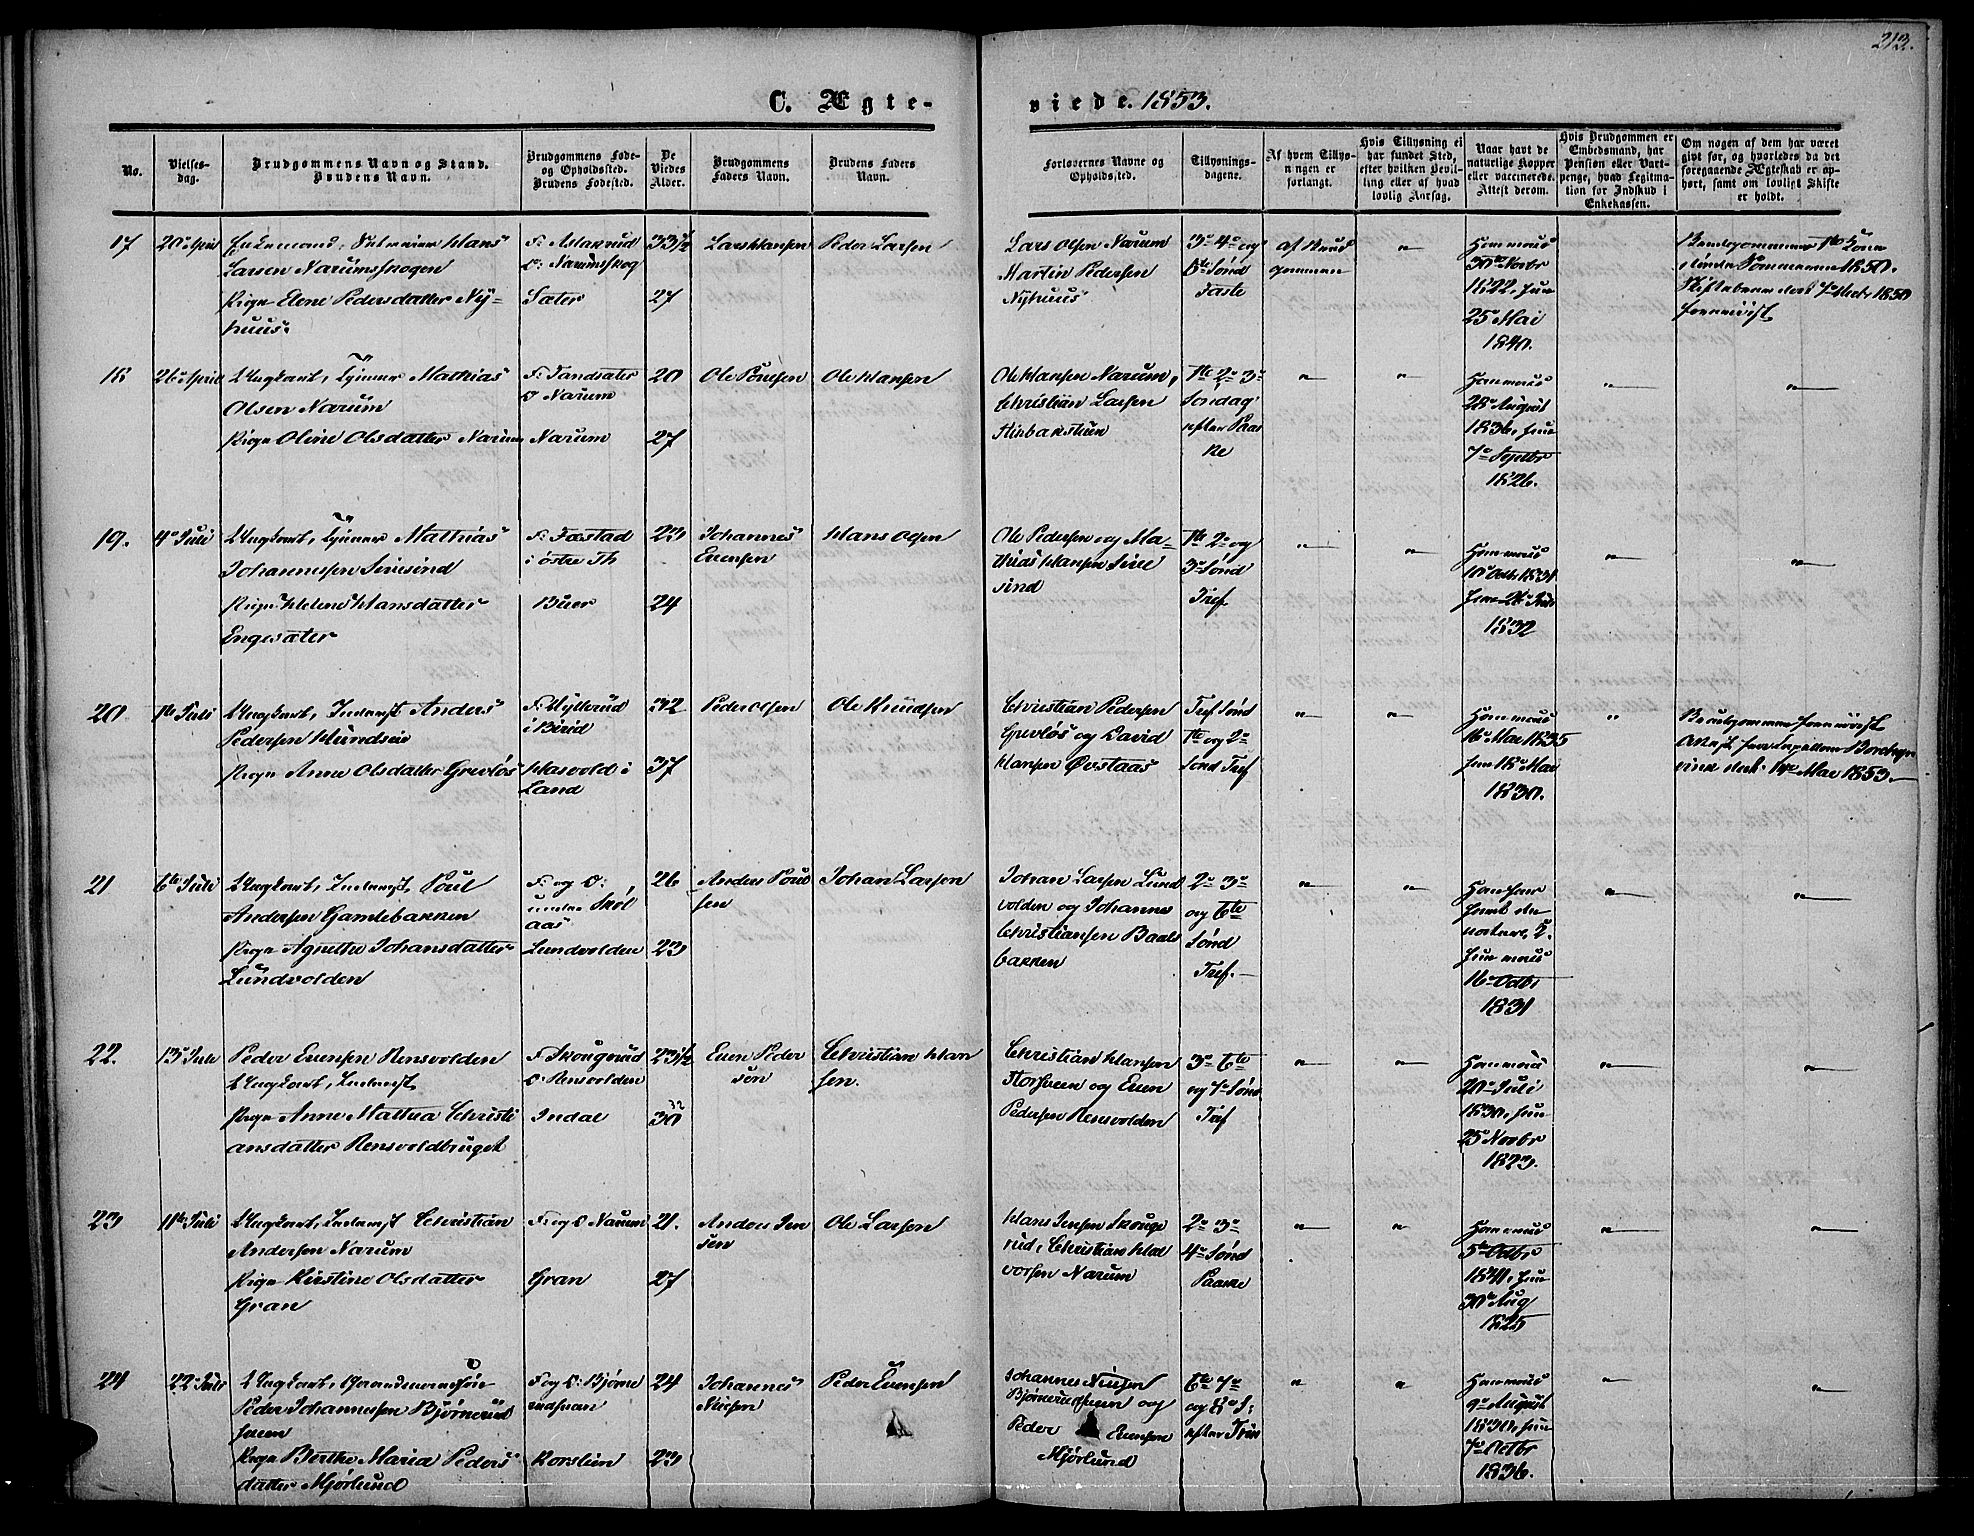 213.
C. Ægte-
viede. 1853.
No.
Vielses-
dag.
Brudgommens Navn og Stand.
Brudens Navn.
Brudgommens Føde-
og Opholdssted.
Brudens Fødested.
De
Viedes
Alder.
Brudgommens
Faders Navn.
Brudens Faders
Navn.
Forlovernes Navne og
Opholdssted.
Tillysnings-
dagene.
Af hvem Tillys-
ningen er
forlangt.
Hvis Tillysning ei
har fundet Sted,
efter hvilken Bevil-
ling eller af hvad
lovlig Aarsag.
Naar havt de
naturlige Kopper
eller vaccinerede.
Attest derom.
Hvis Brudgommen er
Embedsmand, har
Pension eller Vart-
penge, hvad Legitima-
tion for Indskud i
Enkekassen.
Om nogen af dem har været
gift før, og hvorledes da det
foregaaende Ægteskab er op-
hørt, samt om lovligt Skifte
er holdt.
17
20 April
Enkemand, Hans
Larsen Narumskogen
Pige Elene Pedersdatter Ny-
huus.
F. Aslakrud
O. Narumskog
Sæter
33½
27
Lars Hansen
Peder Larsen
Lars Olsen Narum
Martin Pedersen
Nyhuus
3die 4de og
5te Sønd
Faste
af Brud
gommen
"
Ham vacc
30 Novbr
1822, hun
25 Mai
1840.
1850.
1850
18
26 April
Ungkarl, Mathias
Olsen Narum
Pige Oline Olsdatter Narum
F. Sandsæter
O Narum
Narum
20
27
Ole Poulsen
Ole Hansen
Ole Hansen Narum,
Christian Larsen
1te 2den 3die
Søndag
efter Paa
ske
"
"
Ham vacc
28 August
1836, hun
7 Septbr
1826.
"
"
19.
4 Juli
Ungkarl, Mathias
Johannessen Sivesind
Pige Helene Hansdatter
Engesæter
F. Fæstad
i østre Th
Buer
23
24
Johannes
Evensen
Hans Olsen
Ole Pedersen og Ma-
thias Hansen Sive
sind
1te 2den og
3die Sønd
Tref
"
"
Ham vacc
10 Octb 1831
1832
"
"
20
1te Juli
Ungkarl, Inderst Anders
Pedersen Hundseie
Pige Anne Olsdatter Grevløs
F. Hytterud
i Birid
Hasvold i
Land
32
37
Peder Olsen
Ole Knudsen
Christian Pedersen
Grevløs og David
Hansen Øvstaas
Tref Sønd
1te og 2den
Sønd Tref
"
"
Ham vacc
16 Mai 1835
hun 18 Mai
1830.
"
Brudgommen
Mai 1853.
21
6te Juli
Ungkarl, Inderst, Poul
Andersen Gamlebakken
Pige Agnethe Johansdatter
Lundvolden
F. og O.
under Skøl
aas
Lundvolden
26
23
Anders Poul
sen
Johan Larsen
Johan Larsen Lund
volden og Johannes
Christiansen Baals
bakken
2den 3die
og 6te
Sønd
Tref.
"
"
hun vacc
16 Octbr
1831
"
"
22.
13 Juli
Peder Evensen Rensvolden
Ungkarl, Inderst
Pige Anne Mathea Christi
ansdatter Rensvoldbruget
F. Skougrud
O. Rensvolden
Indal
23½
30
Even Peder
sen
Christian Han
sen.
Christian Hansen
Storsveen og Even
Pedersen Rensvolden
3die 6te
og 7de Sønd
Tref
"
"
Ham vacc
20 Juli
1830, hun
25 Novbr
1823.
"
"
23
11te Juli
Ungkarl, Inderst Christian
Andersen Narum
Pige Kirstine Olsdatter
Gran
F. og O Narum
Gran
21.
27
Anders Jen
sen
Ole Larsen
Hans Jensen Skouge
rud, Christian Hal
vorsen Narum
2den 3die
4de Sønd
Paaske
"
"
Ham vacc
5te Octbr
1841, hun
30 Aug
1825
"
"
24
22 Juli
Ungkarl, Gaardmandssøn
Peder Johannessen Bjørnerud
sveen
Pige Berthe Maria Peders
datter Mjørlund
F. og O. Bjørne
rudsveen
Korslien
24
23
Johannes
Nielsen
Peder Evensen
Johannes Nielsen
Bjørnerudsveen og
Peder Evensen
Mjørlund
6te 7de
og 8de S.
efter Trin
"
"
Ham vacc
9 August
1830, hun
7 Octbr
1836.
"
"